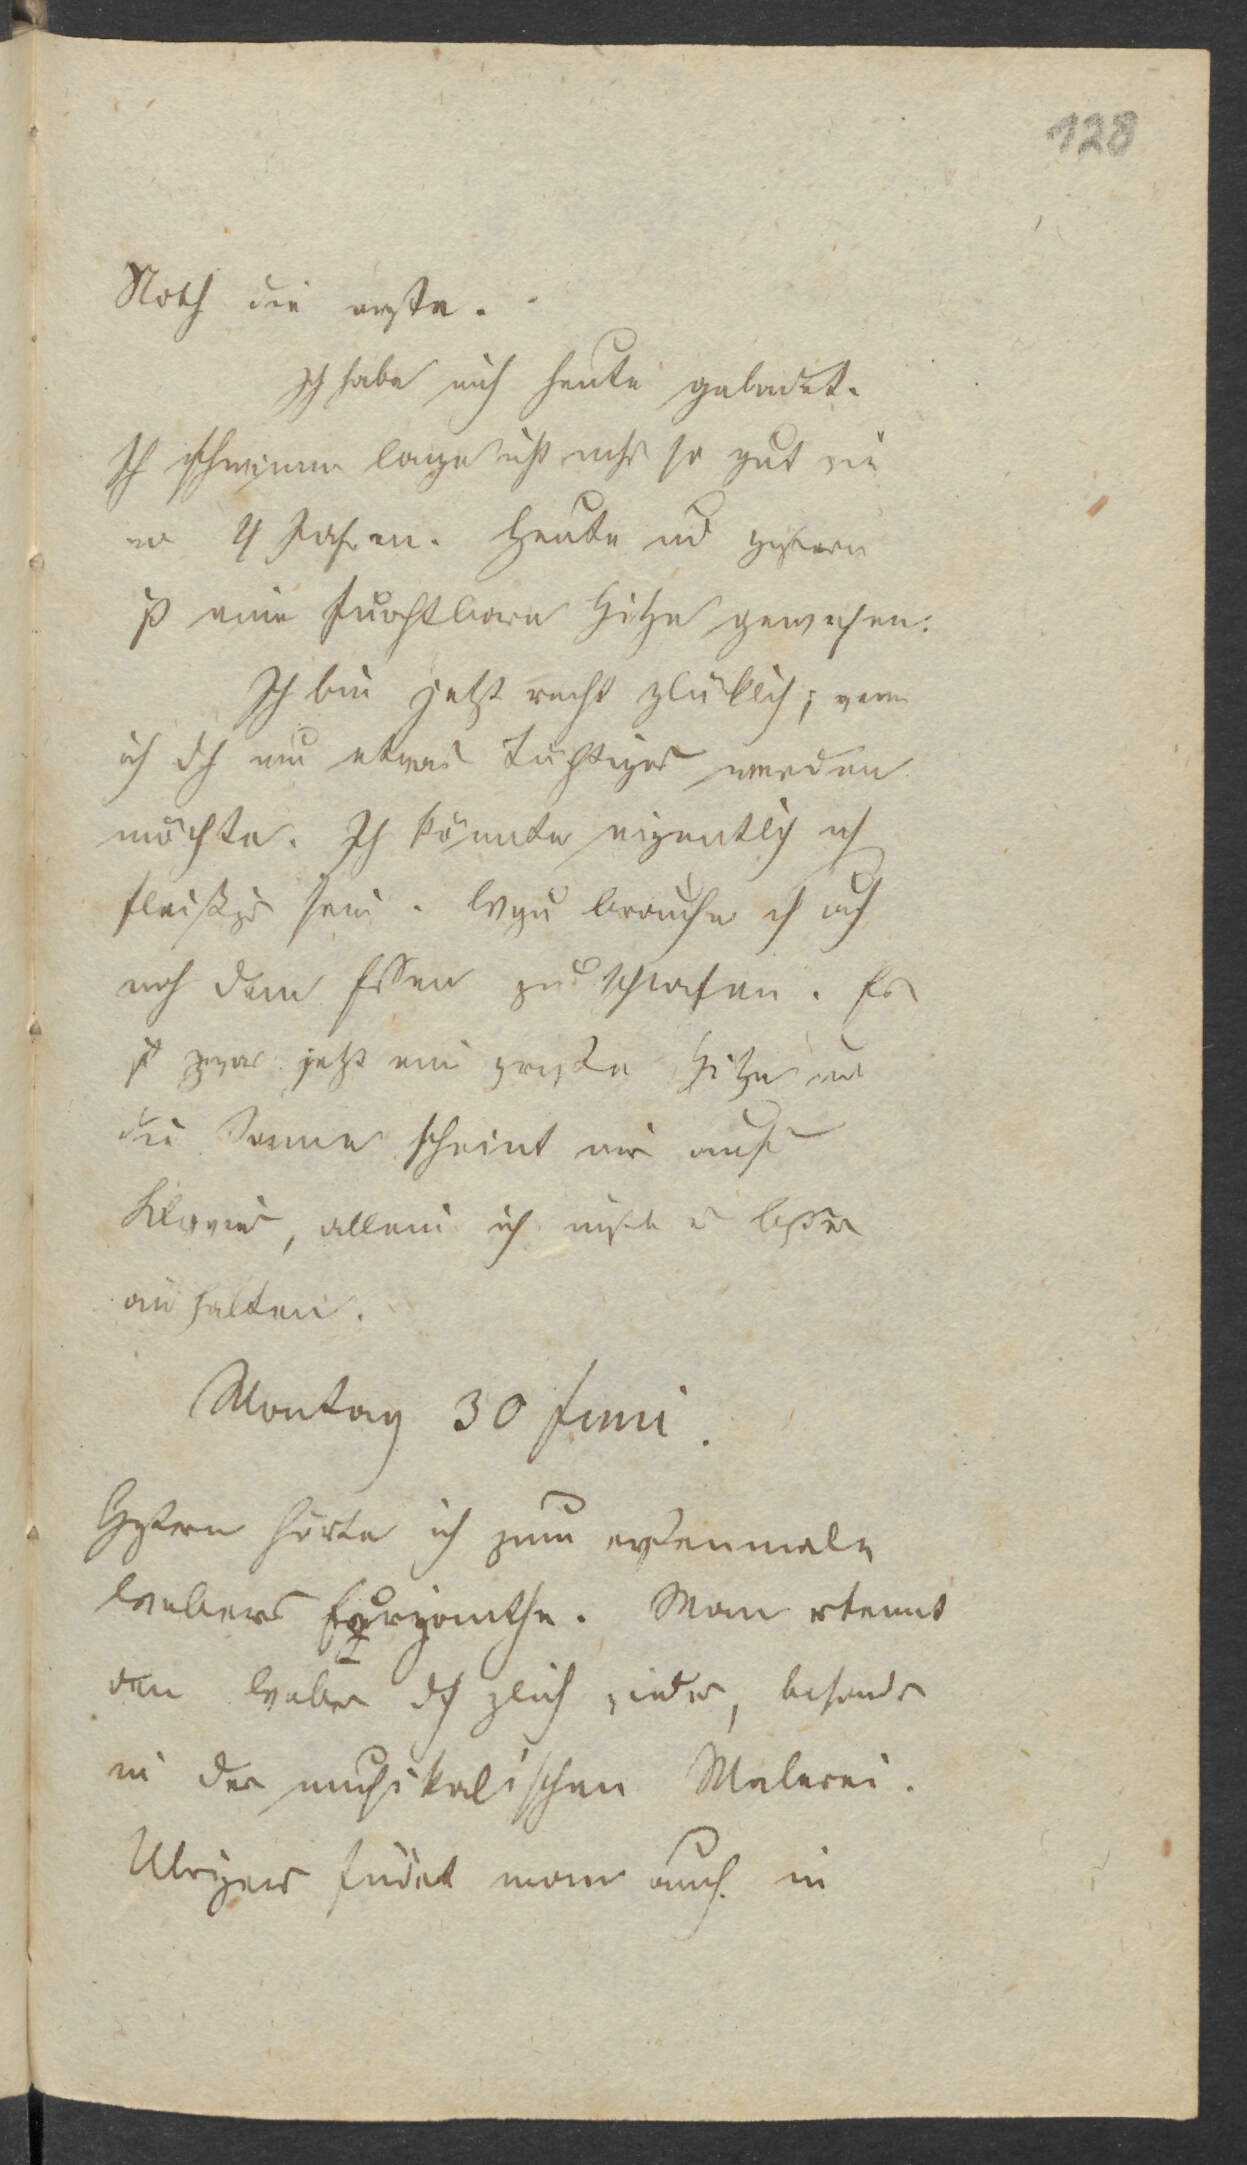 128
Noth die erste.
Ich habe mich heute gebadet.
Ich schwimme lange nicht mehr so gut wie
vor 4 Jahren. Heute und gestern
ist eine furchtbare Hitze gewesen.
Ich bin jetzt recht glücklich; wenn
ich doch nur etwas Tüchtiges werden
möchte. Ich könnte eigentlich noch
fleißiger sein. Wozu brauche ich auch
nach dem Essen zu schlafen. Es
ist zwar jetzt eine große Hitze und
die Sonne scheint mir aufs
Klavier, allein ich müßte es besser
aushalten.
Montag 30 Juni.
Gestern hörte ich zum erstenmale
Webers Euryanthe. Man erkennt
den Weber doch gleich wieder, besonders
in der musikalischen Malerei.
Übrigens findet man auch in